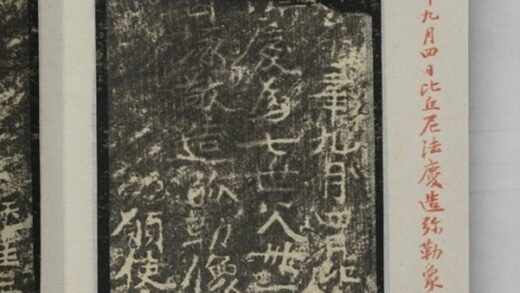 年九月四日比丘尼法慶造弥勒象
年九月四日比
慶爲七世父母
因緣敬造弥勒像
願使